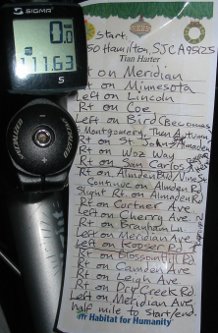 SIGMA
0.0
111.63
S
Start
50 Hamilton, SJCA 95125
Tian Harter
Rt on Meridian
Rt on Minnesota
Left on Lincoln
Rt on Coe
Left on Bird (Becomes
Montgomery, Then Autumn
Rt on St John
Rt on Woz Way
Rt on San Carlos
Rt on Almaden Blvd/Vine St
Continue on Almaden Rd
Slight Rt on Almaden Rd
Rt on Curtner Ave
Left on Cherry Ave
Rt on Branham Ln
Left on Meridian Ave
Left on Redmond
Rt on Blossomhill Rd
Rt on Camden Ave
Rt on Leigh Ave
Rt on Dry Creek Rd
Left on Meridian Ave
half mile to start/end.
Habitat for Humanity